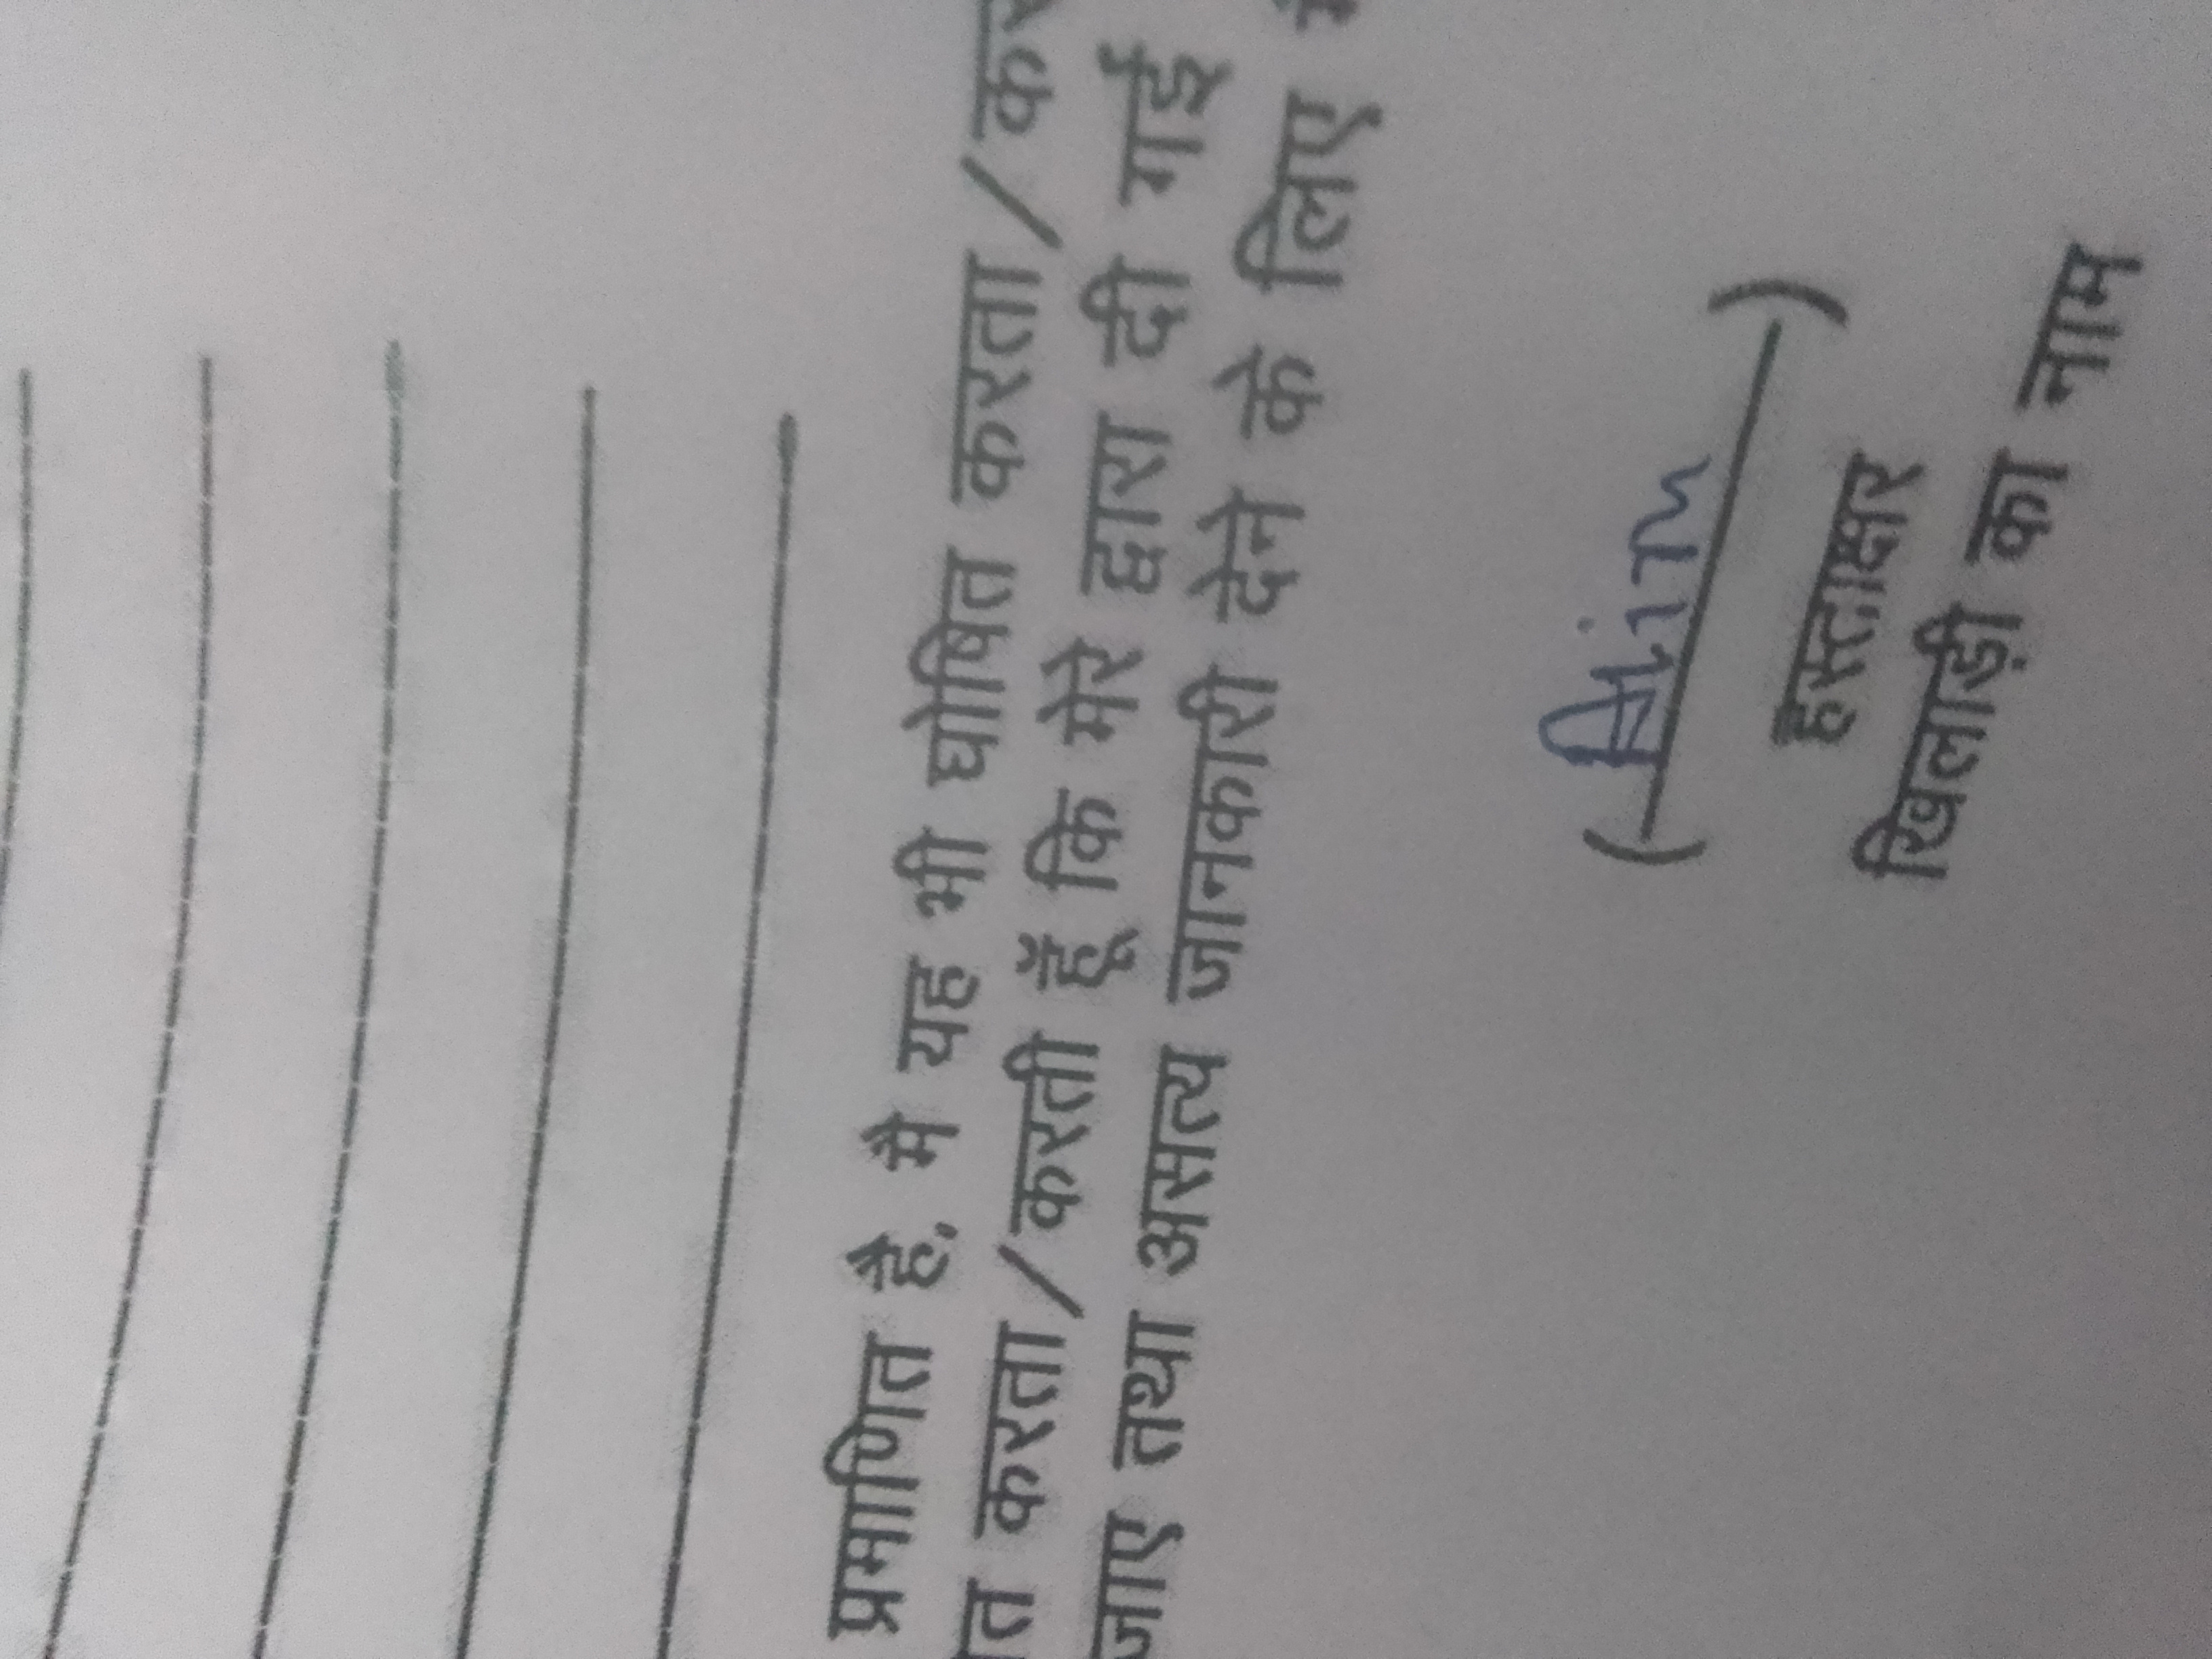 प्रमाणित है. मै यह भी घोषित करता/
त करता/करती हूँ कि मेरे द्वारा दी गई
जाए तथा असत्य जानकारी देने के लिए
( )
हस्ताक्षर
खिलाड़ी का नाम